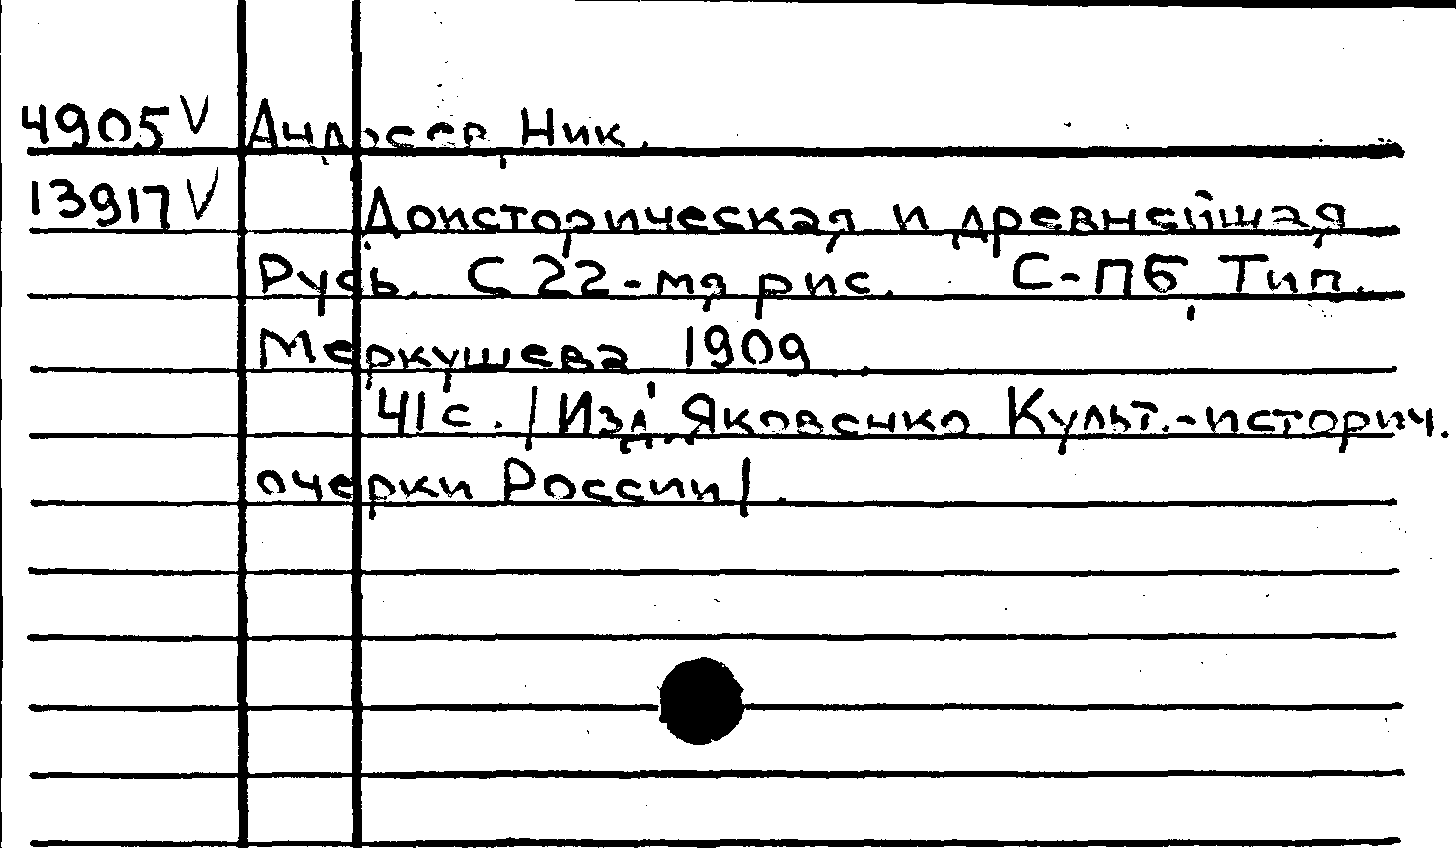 4905 V Андреев, Ник.
13917 V Доисторическая и древнейшая
Русь. С 22-мя рис. С-Пб, Тип.
Меркушева 1909.
41 с. /Изд. Яковенко Культ.-историч.
очерки России/.